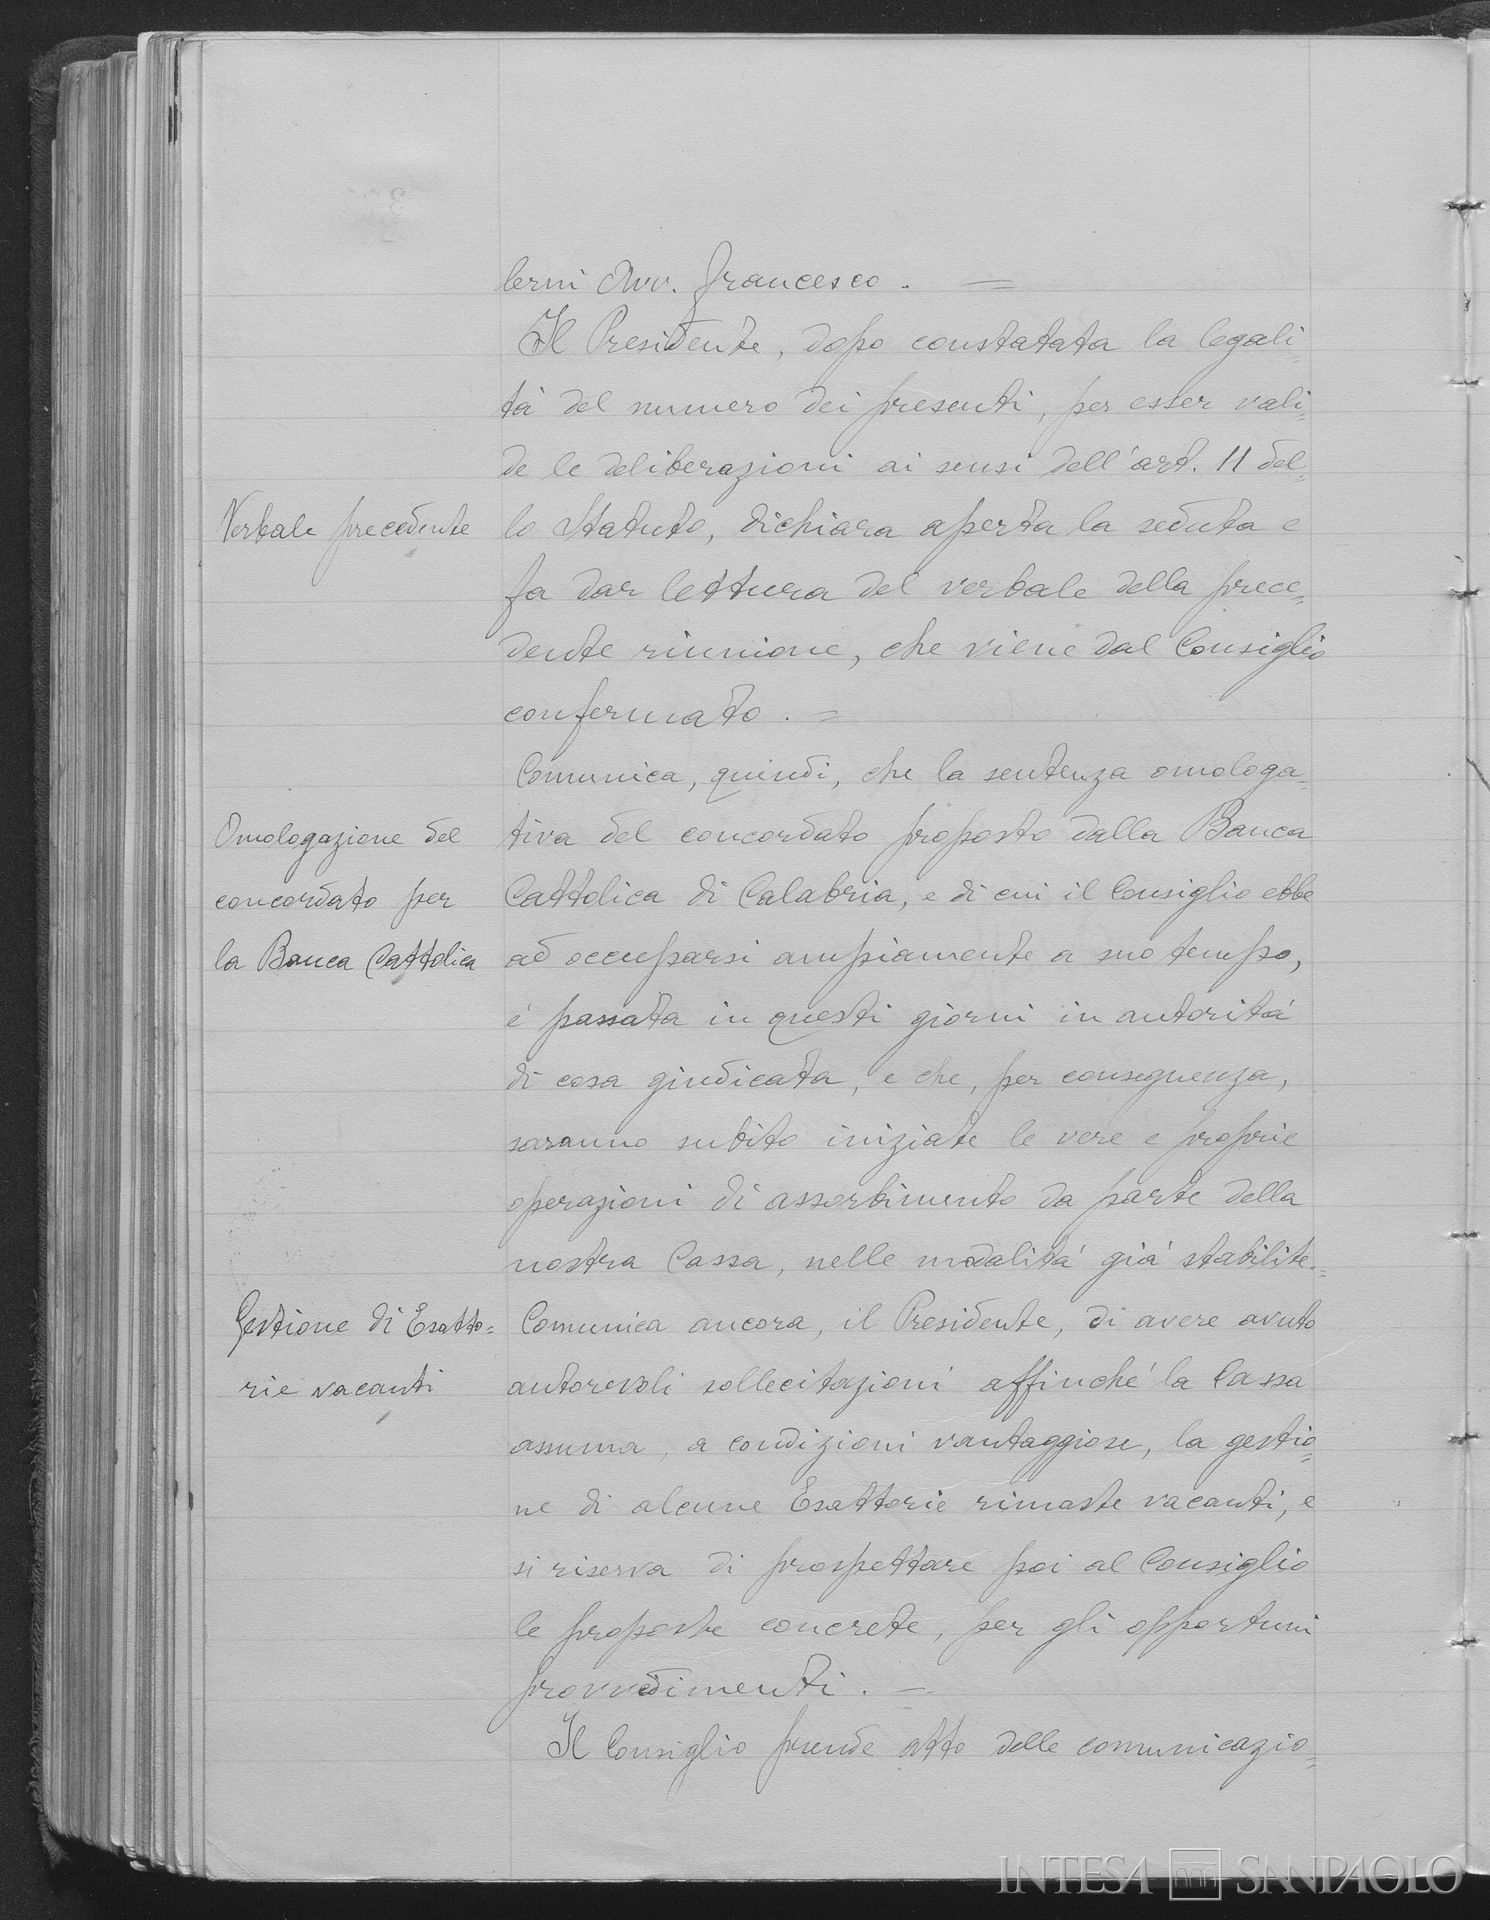 lerni Avv. Francesco. =
Il Presidente, dopo constatata la legali=
tà del numero dei presenti, per esser vali=
de le deliberazioni ai sensi dell'art. 11 del=
Verbale precedente
lo Statuto, dichiara aperta la seduta e
fa dar lettura del verbale della prece=
dente riunione, che viene dal Consiglio
confermato. =
Comunica, quindi, che la sentenza omologa=
Omologazione del
concordato per
la Banca Cattolica
tiva del concordato proposto dalla Banca
Cattolica di Calabria, e di cui il Consiglio ebbe
ad occuparsi ampiamente a suo tempo,
è passata in questi giorni in autorità
di cosa giudicata, e che, per conseguenza,
saranno subito iniziate le vere e proprie
operazioni di assorbimento da parte della
nostra Cassa, nelle modalità già stabilite.=
Gestione di Esatto=
rie vacanti
Comunica ancora, il Presidente, di avere avuto
autorevoli sollecitazioni affinché la Cassa
assuma, a condizioni vantaggiose, la gestio=
ne di alcune Esattorie rimaste vacanti, e
si riserva di prospettare poi al Consiglio
le proposte concrete, per gli opportuni
provvedimenti. —
Il Consiglio prende atto delle comunicazio=
INTESA SANPAOLO